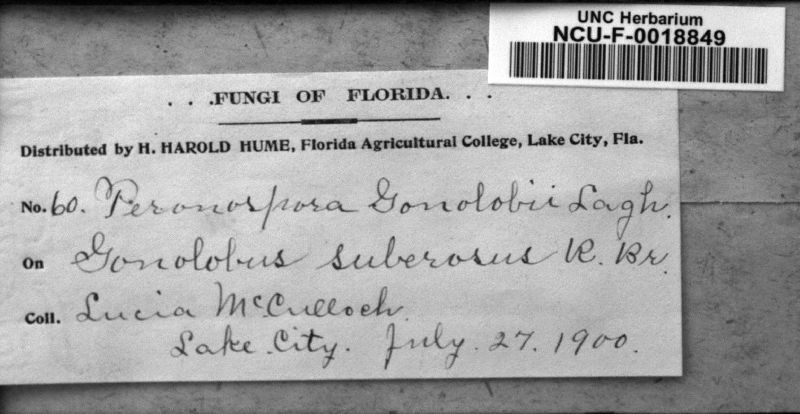 UNC Herbarium
NCU-F-0018849
. . .FUNGI OF FLORIDA. . .
Distributed by H. HAROLD HUME, Florida Agricultural College, Lake City, Fla.
No. 60. Peronospora Gonolobii Lagh.
On Gonolobus suberosus R. Br.
Coll. Lucia McCulloch.
Lake City. July. 27. 1900.